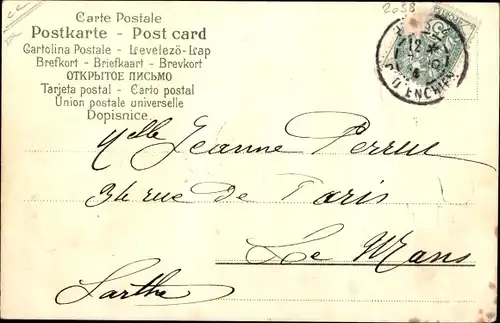 2058
Carte Postale
Postkarte - Post card
Cartolina Postale - Levelező-Lap
Brefkort - Briefkaart - Brevkort
ОТКРЫТОЕ ПИСЬМО
Tarjeta postal - Carto postal
Union postale universelle
Dopisnice.
D'ENGHIEN
Melle Jeanne
34 rue de Paris
Le Mans
Sarthe